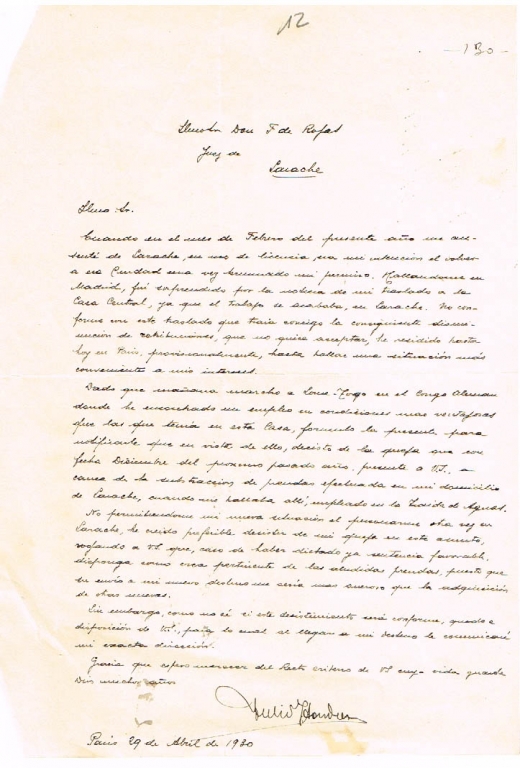 12
- 130 -
Ilmo Sr Don F de Rojas
Juez de
Larache
Ilmo. Sr.
Cuando en el mes de Febrero del presente año me au-
senté de Larache, en uso de licencia, era mi intención el volver
a esa Ciudad una vez terminado mi permiso. Hallandome en
Madrid, fui sorprendido por la noticia de mi traslado a la
Casa Central, ya que el trabajo se acababa, en Larache. No con-
forme con este traslado que traia consigo la consiguiente dismi-
nución de retribuciones, que no quise acceptar, he residido hasta
hoy en Paris, provisionalmente, hasta hallar una situación más
conveniente a mis intereses.
Dado que mañana marcho a Lome-Togo en el Congo Aleman
donde he encontrado un empleo en condiciones mas ventajosas
que las que tenia en esta Casa, formulo la presente para
notificarle que en vista de ello, desisto de la queja que con
fecha Diciembre del proximo pasado año, presenté a V.S., a
causa de la substracción de prendas efectuada en mi domicilio
de Larache, cuando me hallaba allí, empleado en la Traida de Aguas.
No permitiendome mi nueva situación el presenciarme otra vez en
Larache, he creido preferible desistir de mi queja en este asunto,
rogando a VS que, caso de haber dictado ya sentencia favorable,
disponga como crea pertinente de las aludidas prendas, puesto que
su envio a mi nuevo destino me seria mas oneroso que la adquisición
de otras nuevas.
Sin embargo, como no sé si este desistimiento será conforme, quedo a
disposición de V.S., para lo cual al llegar a mi destino le comunicaré
mi exacta dirección.
Gracia que espero merecer del Recto criterio de VS cuya vida guarde
Dios muchos años
Paris 29 de Abril de 1930